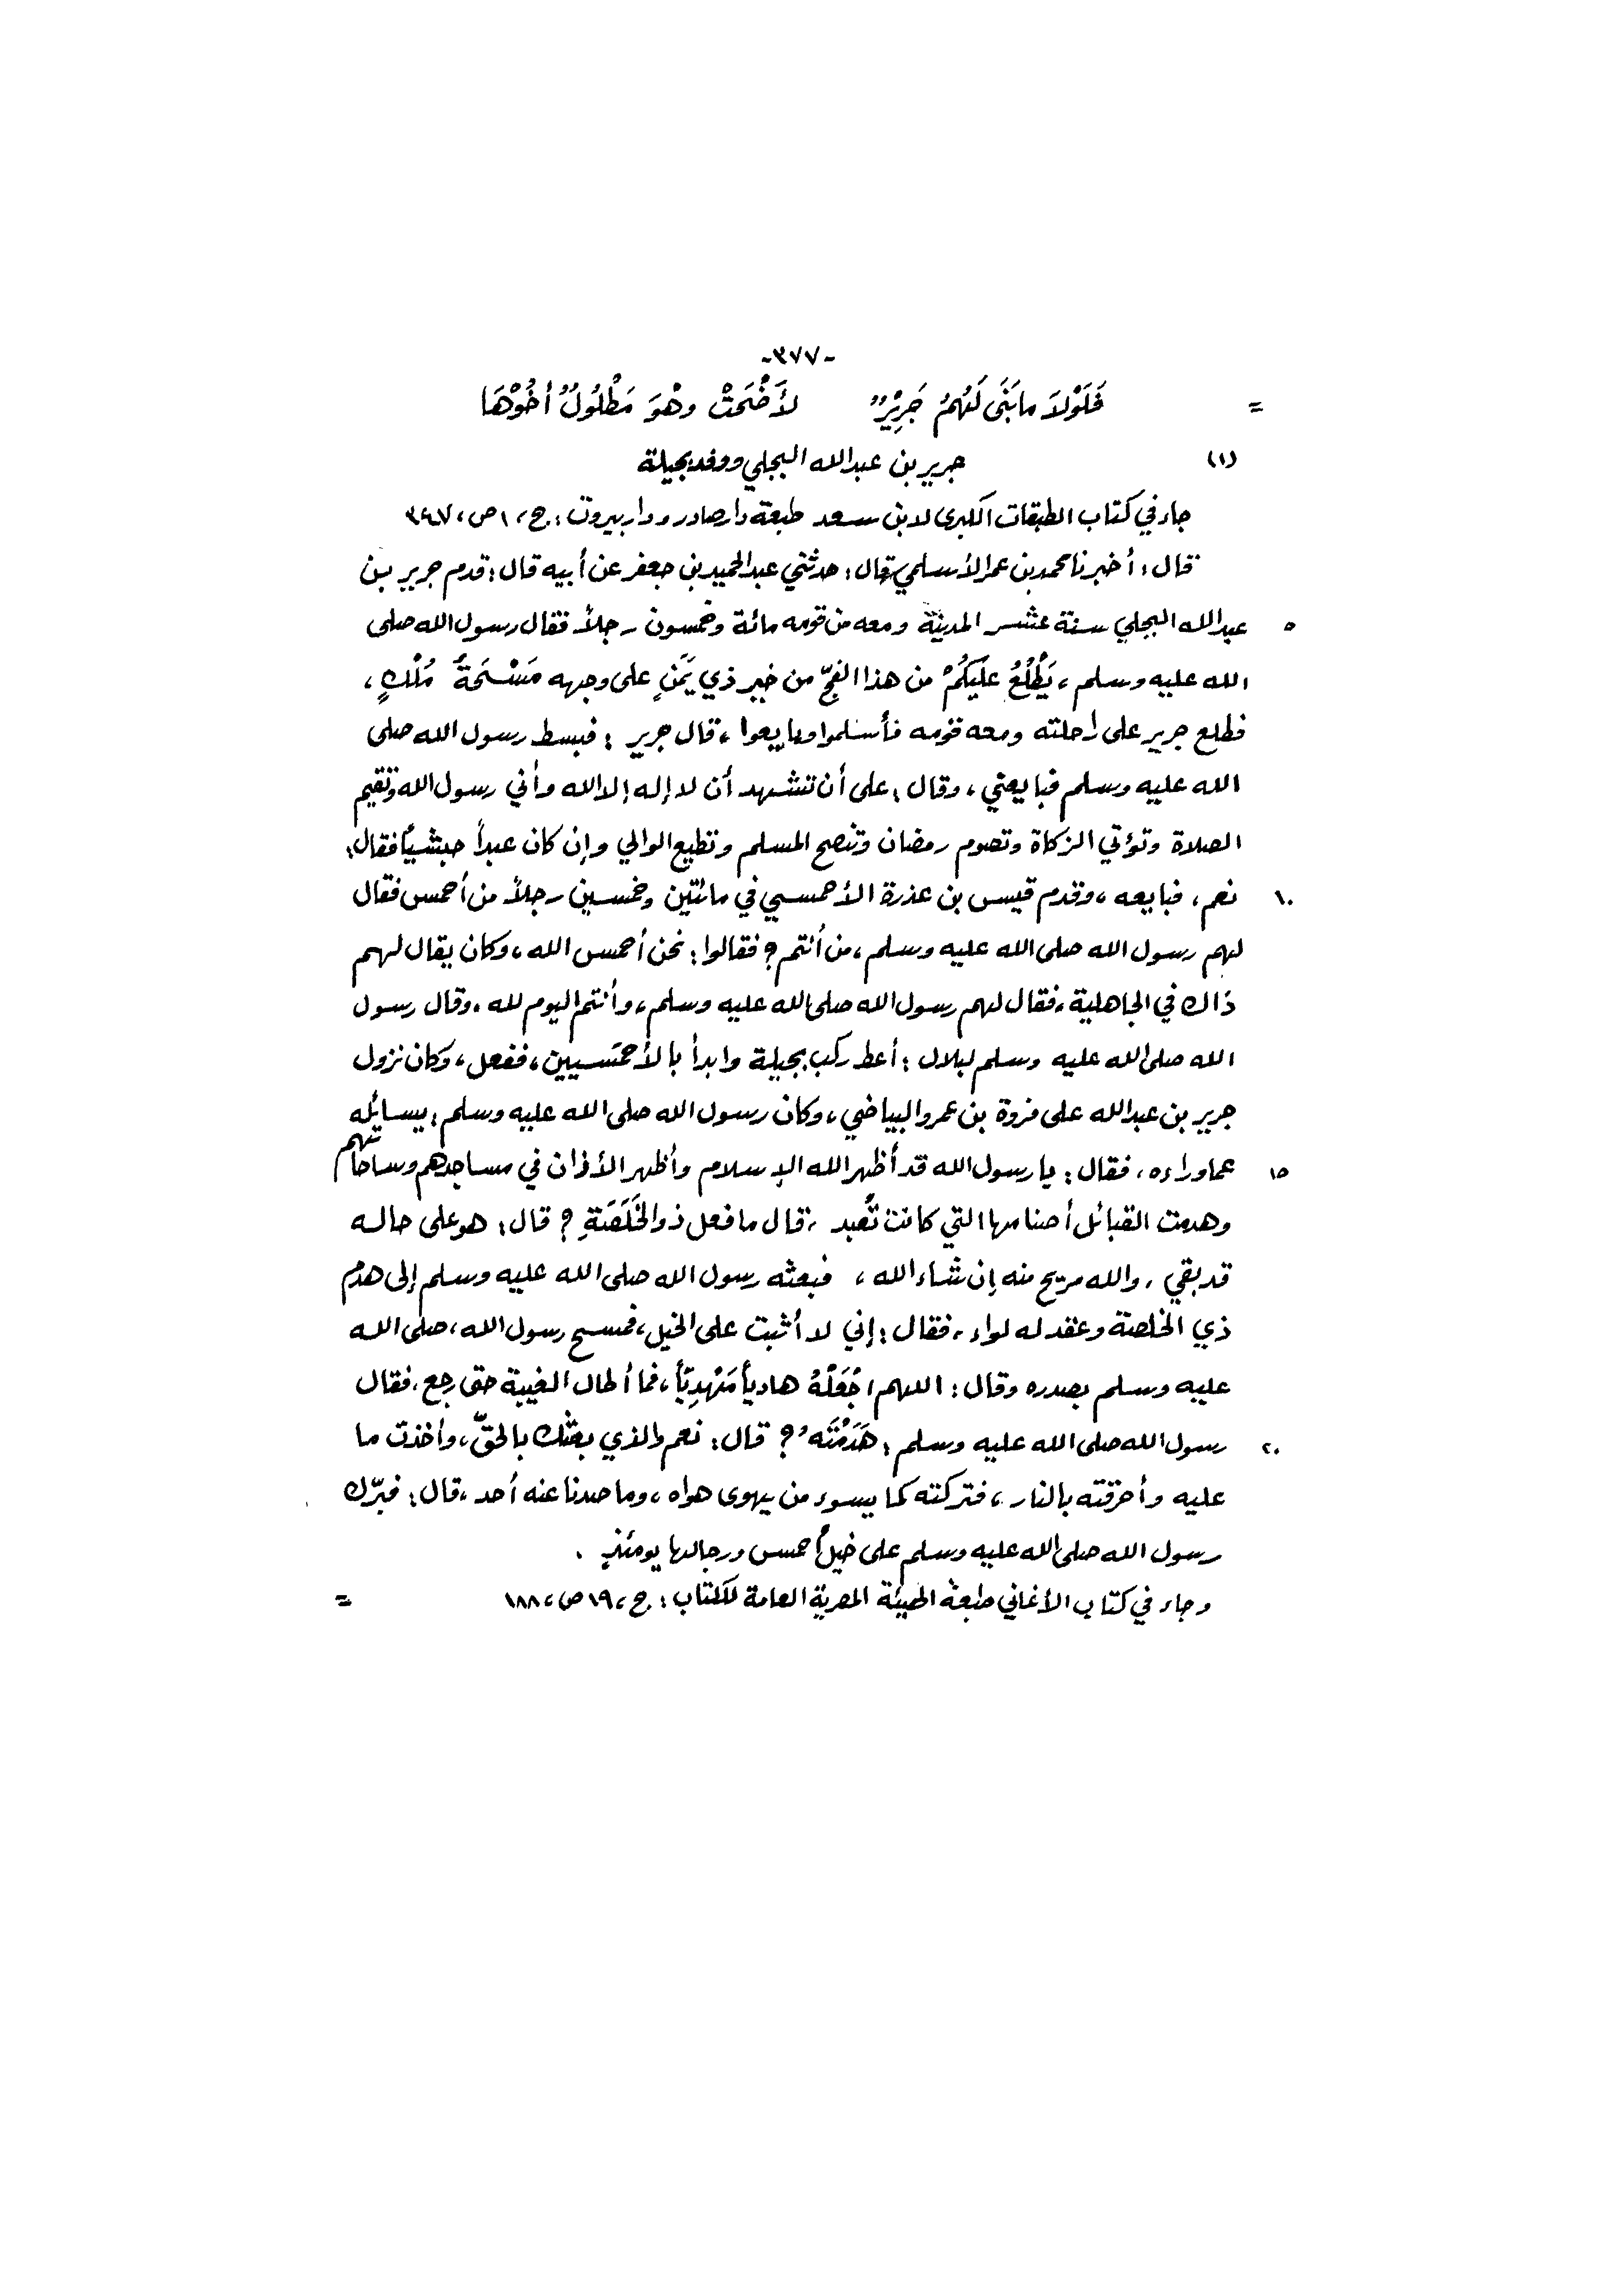 -٣٧٧-
= فَلَوْلاَ ما بَنَى لَهُمُ جَرِيْرٌ لأَضْحَتْ وهْوَ مَطْلُولٌ أخُوْهَا
(١) جرير بن عبدالله البجلي ووفد بجيلة
جاء في كتاب الطبقات الكبرى لابن سعد طبعة دار صادر ودار بيروت: ج، ١ ص، ٣٤٧
قال: أخبرنا محمد بن عمر الأسلمي قال: حدثني عبد الحميد بن جعفر عن أبيه قال: قدم جرير بن
٥ عبدالله البجلي سنة عشر المدينة ومعه من قومه مائة وخمسون رجلاً فقال رسول الله صلى
الله عليه وسلم، يَطْلُعُ عَلَيكُمْ من هذا الفجّ من خير ذي يَمَنٍ على وجهه مَسْحَةُ مُلْكٍ،
فطلع جرير على راحلته ومعه قومه فأسلموا وبايعوا، قال جرير: فبسط رسول الله صلى
الله عليه وسلم فبايعني، وقال: على أن تشهد أن لا إله إلا الله وأني رسول الله وتقيم
الصلاة وتؤتي الزكاة وتصوم رمضان وتنصح المسلم وتطيع الوالي وإن كان عبداً حبشياً فقال:
١٠ نعم، فبايعه، وقدم قيس بن عذرة الأحمسي في مائتين وخمسين رجلاً من أحمس فقال
لهم رسول الله صلى الله عليه وسلم، من أنتم؟ فقالوا: نحن أحمس الله، وكان يقال لهم
ذاك في الجاهلية، فقال لهم رسول الله صلى الله عليه وسلم، وأنتم اليوم لله، وقال رسول
الله صلى الله عليه وسلم لبلال: أعط ركب بجيلة وابدأ بالأحمَسيين، ففعل، وكان نزول
جرير بن عبدالله على فروة بن عمرو البياضي، وكان رسول الله صلى الله عليه وسلم: يسائله
١٥ عما وراءه، فقال: يا رسول الله قد أظهر الله الإسلام وأظهر الأذان في مساجدهم وساحاتهم
وهدمت القبائل أصنامها التي كانت تُعبد، قال ما فعل ذو الخَلَصَةِ؟ قال: هو على حاله
قد بقي، والله مريح منه إن شاء الله، فبعثه رسول الله صلى الله عليه وسلم إلى هدم
ذي الخلصة وعقد له لواء، فقال: إني لا أثبت على الخيل، فمسح رسول الله، صلى الله
عليه وسلم بصدره وقال: اللهم اجْعَلْهُ هادياً مَهْدِيّاً، فما أطال الغيبة حتى رجع، فقال
٢٠ رسول الله صلى الله عليه وسلم: هَدَمْتَه؟ قال: نعم والذي بعثك بالحقّ، وأخذت ما
عليه وأحرقته بالنار، فتركته كما يسوء من يهوى هواه، وما صدنا عنه أحد، قال: فبرّك
رسول الله صلى الله عليه وسلم على خيل أحمس ورجالها يومئذٍ.
وجاء في كتاب الأغاني طبعة الهيئة المصرية العامة للكتاب: ج، ١٩ ص، ١٨٨ =